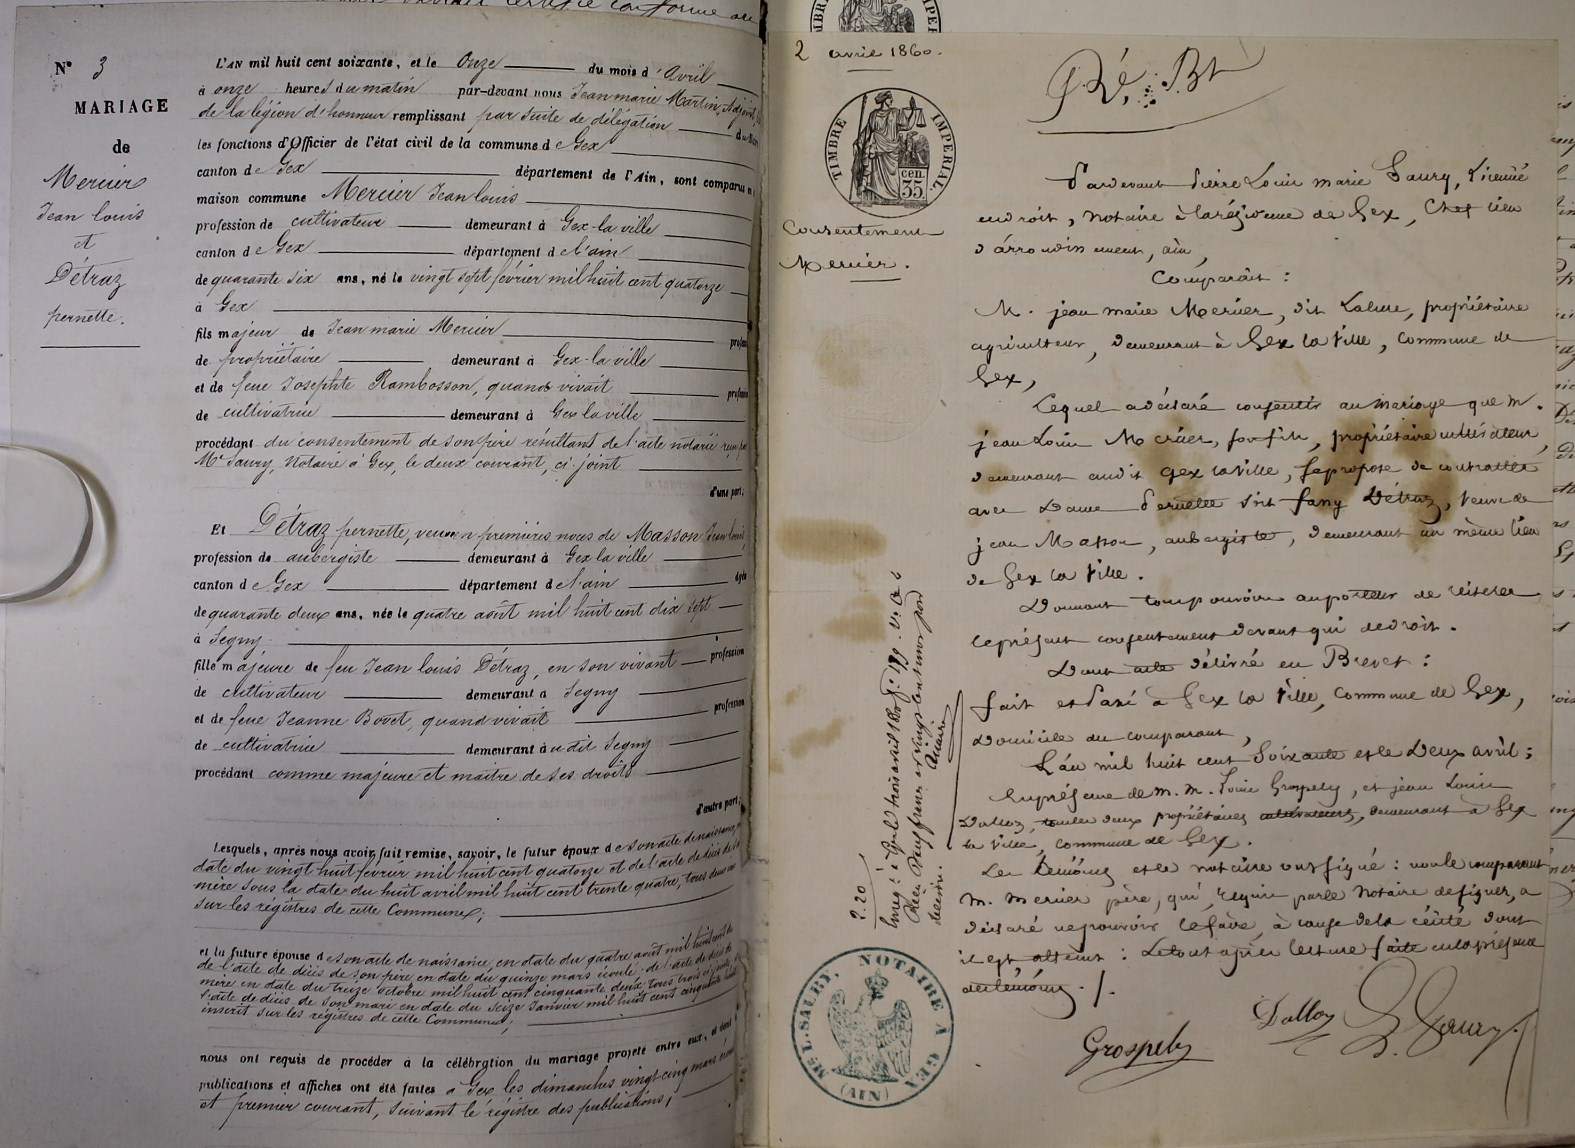 N° 3
MARIAGE
de
Mercier
Jean louis
et
Détraz
pernette.
L'AN mil huit cent soixante, et le Onze du mois d'Avril
à onze heures du matin par-devant nous Jean marie Martin, Adjoint,
de la légion d'honneur remplissant par suite de délégation du
les fonctions d'Officier de l'état civil de la commune de Gex
canton de Gex département de l'Ain, sont comparus
maison commune Mercier Jean louis
profession de cultivateur demeurant à Gex-la ville
canton de Gex département de l'ain
de quarante six ans, né le vingt sept février mil huit cent quatorze
à Gex
fils majeur de Jean marie Mercier
de propriétaire demeurant à Gex-la ville
et de feue Josephte Rambosson, quand vivait
de cultivatrice demeurant à Gex la ville
procédant du consentement de son père résultant de l'acte notarié reçu
Me Saury, Notaire à Gex, le deux courant, ci joint
d'une part.
Et Détraz pernette, veuve en premières noces de Masson Jean louis,
profession de aubergiste demeurant à Gex la ville
canton de Gex département de l'ain âgée
de quarante deux ans, née le quatre août mil huit cent dix sept
à Segny
fille majeure de feu Jean louis Détraz, en son vivant profession
de cultivateur demeurant à Segny
et de feue Jeanne Bovet, quand vivait profession
de cultivatrice demeurant à udit Segny
procédant comme majeure et maitre de ses droits
d'autre part.
Lesquels, après nous avoir fait remise, savoir, le futur époux de son acte de naissance,
date du vingt huit février mil huit cent quatorze et de l'acte de décès de
mère sous la date du huit avril mil huit cent trente quatre, tous deux
sur les régistres de cette Commune;
et la future épouse de son acte de naissance, en date du quatre août mil huit cent
de l'acte de décès de son père, en date du quinze mars écoulé de l'acte de décès de
mère en date du treize octobre mil huit cent cinquante deux, tous trois
l'acte de décès de son mari en date du seize Janvier mil huit cent cinquante
inscrit sur les régistres de cette Commune;
nous ont requis de procéder à la célébration du mariage projeté entre eux, et dont
publications et affiches ont été faites à Gex les dimanches vingt cinq mars
et premier courant, suivant le régistre des publications;
2 avril 1860.
TIMBRE IMPERIAL.
cen.
35
Consentement
Mercier.
Pardevant Pierre Louis marie Saury, Licencié
en droit, notaire à la résidence de Gex, Chef lieu
d'arrondissement, ain,
Comparait :
M. jean marie Mercier, dit Lalure, propriétaire
agriculteur, demeurant à Gex la Ville, commune de
Gex,
Lequel a déclaré consentir au mariage que M.
jean Louis Mercier, son fils, propriétaire cultivateur,
demeurant audit Gex la Ville, se propose de contracter
avec Dame Pernette dite fany Détraz, veuve de
jean Masson, aubergiste, demeurant au même lieu
de Gex la Ville.
Donnant tout pouvoir au porteur de réitérer
le présent consentement devant qui de droit.
Dont acte délivré en Brevet :
fait et Passé à Gex la Ville, commune de Gex,
Domicile du comparant,
L'an mil huit cent soixante et le Deux avril;
En présence de m. m. Louis Grospely, et jean Louis
Dalloz, tous les deux propriétaires cultivateurs, demeurant à Gex
la Ville, commune de Gex.
Les témoins et le notaire ont signé : non le comparant
M. Mercier père, qui, requis par le Notaire de signer, a
déclaré ne pouvoir le faire, à cause de la cécité dont
il est atteint : Le tout après lecture faite en la présence
des témoins ./.
2.20
Me L. SAURY, NOTAIRE À GEX
(AIN)
Grospely
Dalloz
L. Saury